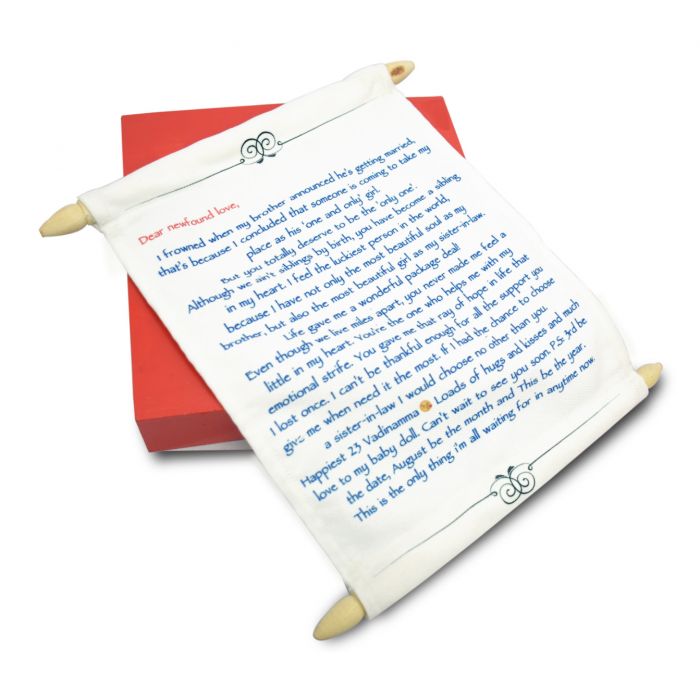 Dear newfound love,
I frowned when my brother announced he's getting married,
that's because I concluded that someone is coming to take my
place as his 'one and only' girl.
But you totally deserve to be the 'only one'.
Although we ain't siblings by birth, you have become a sibling
in my heart. I feel the luckiest person in the world,
because I have not only the most beautiful soul as my
brother, but also the most beautiful girl as my sister-in-law.
Life gave me a wonderful package deal!
Even though we live miles apart, you never made me feel a
little in my heart. You're the one who helps me with my
emotional strife. You gave me that ray of hope in life that
I lost once. I can't be thankful enough for all the support you
give me when need it the most. If I had the chance to choose
a sister-in-law I would choose no other than you.
Happiest 23 Vadinamma Loads of hugs and kisses and much
love to my baby doll. Can't wait to see you soon. P.S. 3rd be
the date, August be the month and This be the year.
This is the only thing i'm all waiting for in anytime now.